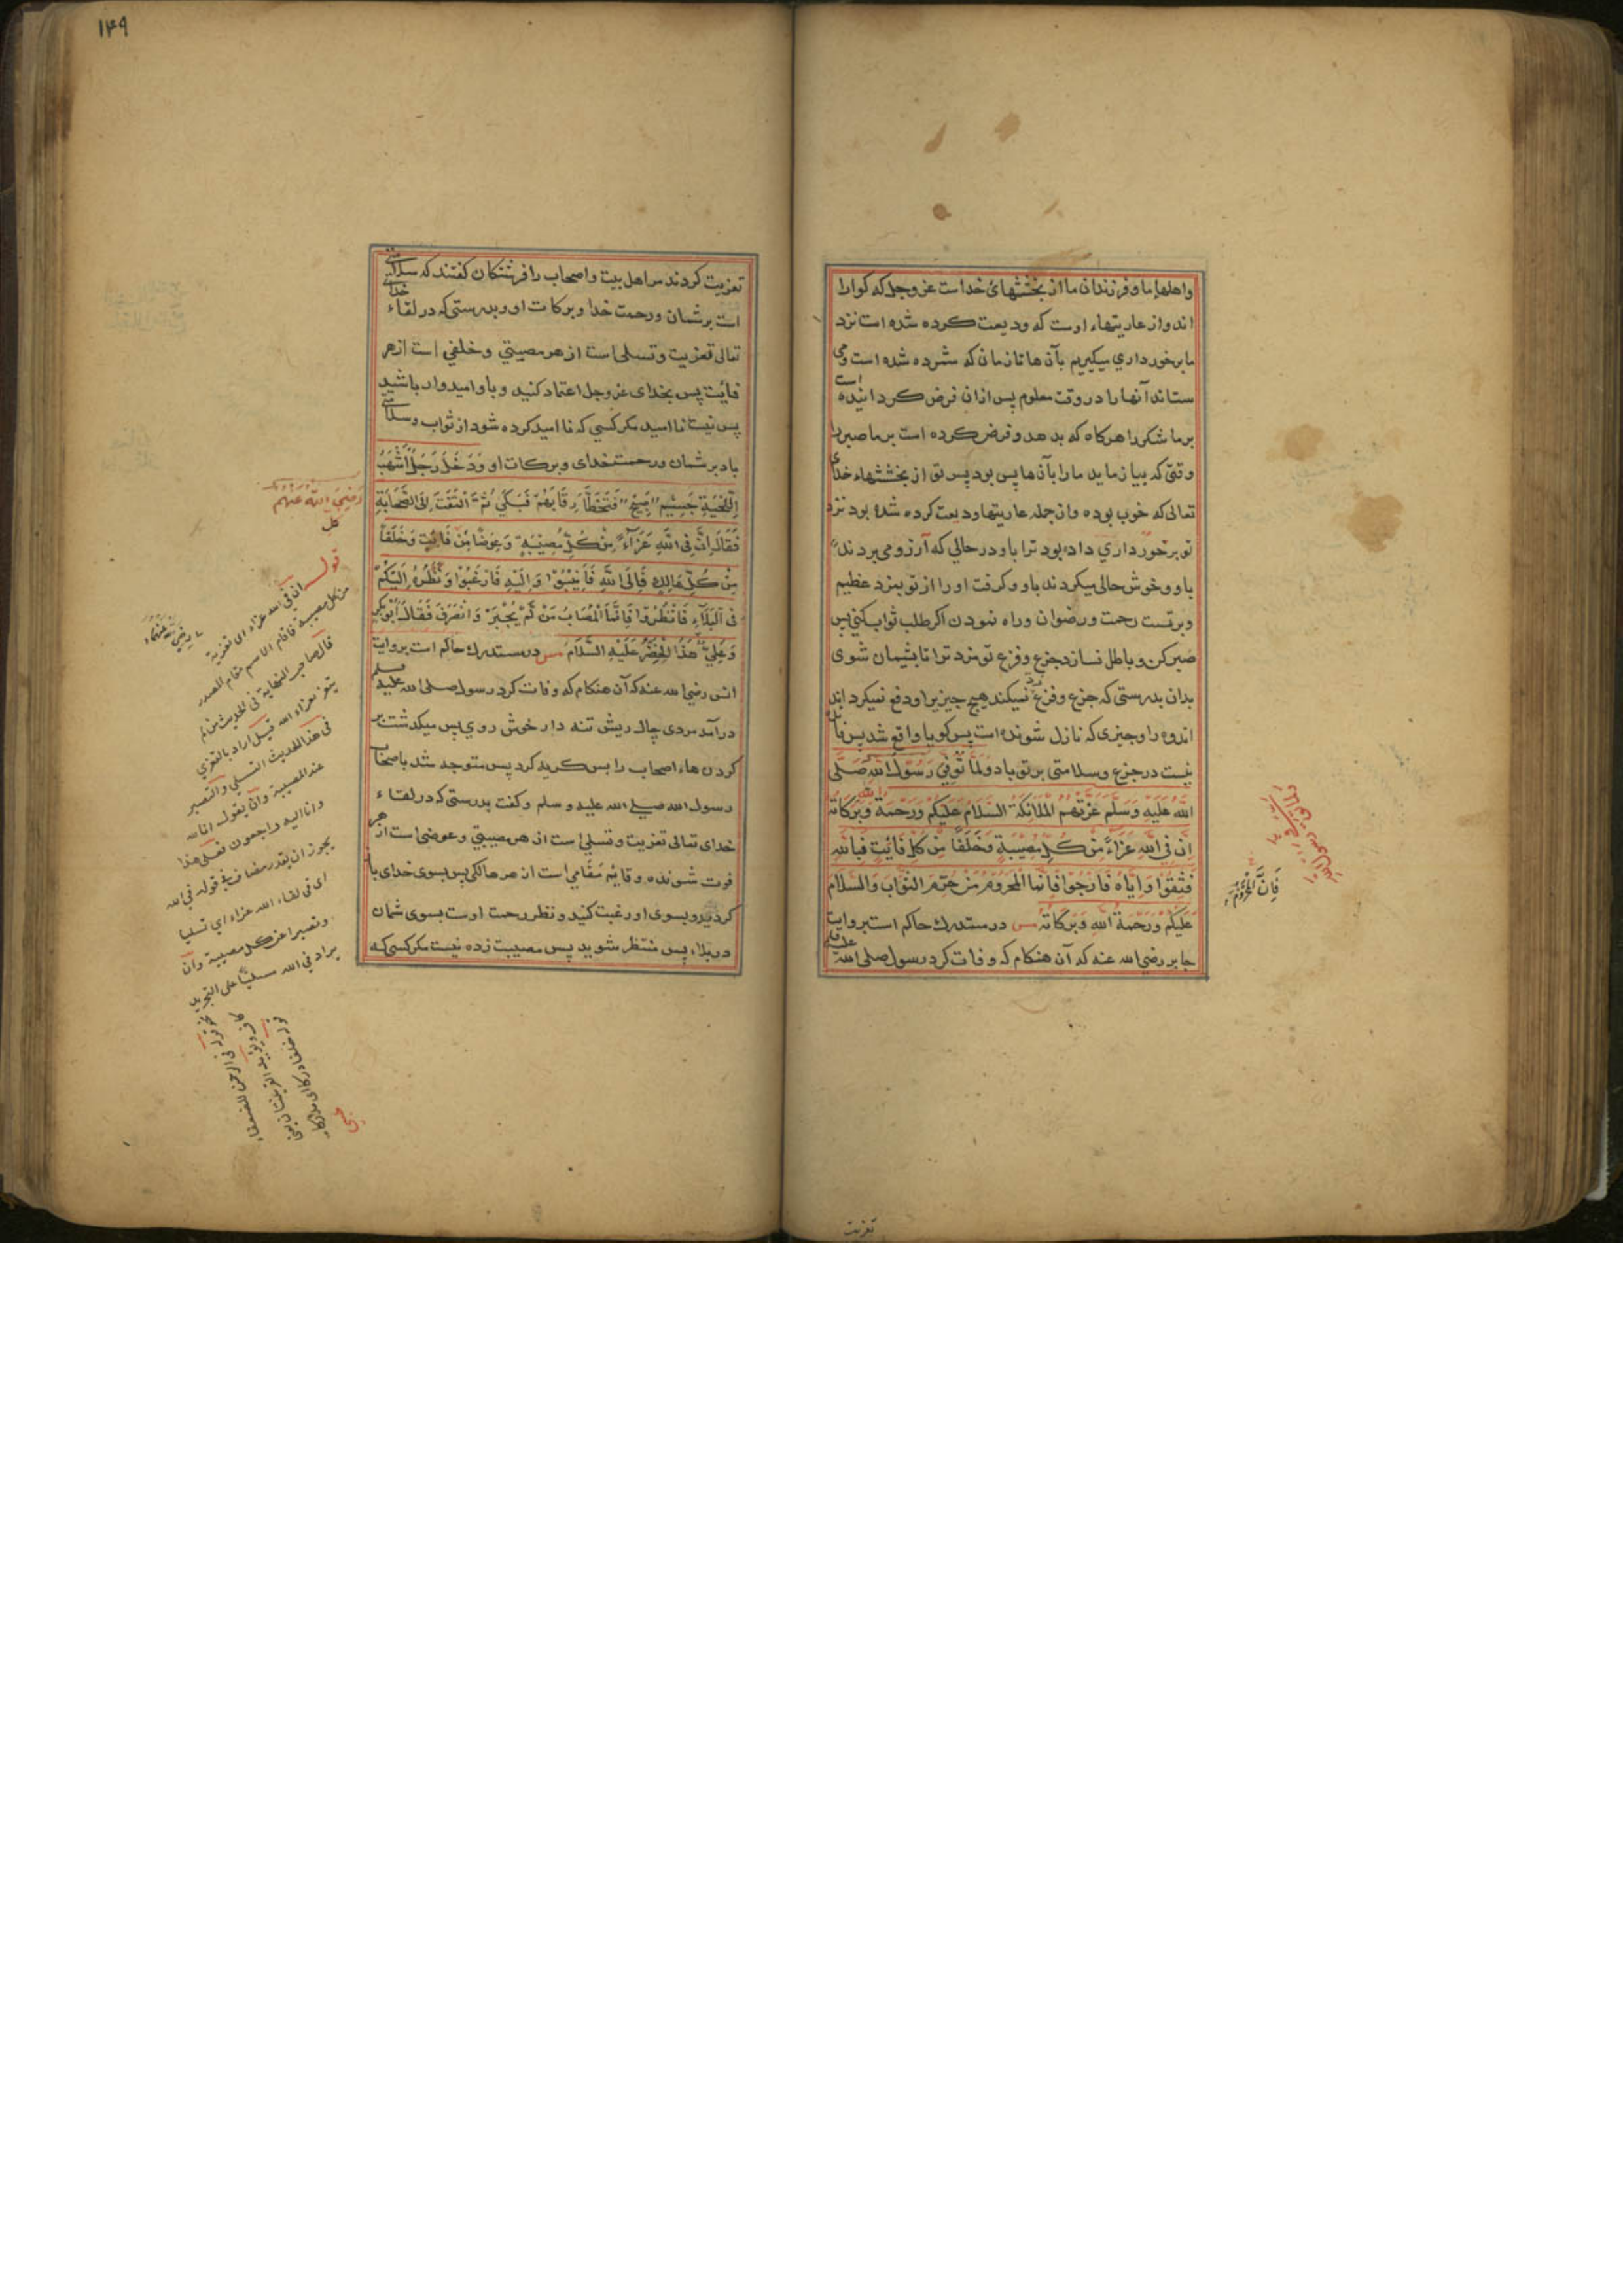 واهلهاء ما و فرزندان ما از بخششهای خداست عز وجل که کوارا
اند و از عاریتهاء اوست که ودیعت کرده شده است نزد
ما برخورداری میکیریم بآن ها تا زمانی که شمرده شده است و می
ستاند آنها را در وقت معلوم پس ازان فرض کردانیده است
بر ما شکر را هرکاه که بدهد و فرض کرده است بر ما صبر را
وقتی که بیازماید ما را بآن ها پس بود پسر تو از بخششهاء خدای
تعالی که خوب بوده و از جمله عاریتها ودیعت کرده شده بود نزد
تو برخورداری داده بود ترا باو در حالی که آرزو می بردند
باو و خوش حالی میکردند باو و کرفت او را از تو بمزد عظیم
و رحمت و رضوان و راه نمودن اکر طلب ثواب کنی پس
صبر کن و باطل نسازد جزع و فزع تو مزد ترا تا پشیمان شوی
بدان بدرستی که جزع و فزع نمیکند هیچ چیز را و دفع نمیکرداند
اندوه را و چیزی که نازل شونده است پس کویا واقع شد پس
نیست در جزع و سلامتی بر تو باد وَلَمَّا تُوُفِّيَ رَسُوْلُ اللهِ صَلَّى
اللهُ عَلَيْهِ وَسَلَّمَ عَزَّتْهُمُ الْمَلَائِكَةُ السَّلَامُ عَلَيْكُمْ وَرَحْمَةُ اللهِ وَبَرَكَاتُهُ
اِنَّ فِي اللهِ عَزَاءً مِنْ كُلِّ مُصِيْبَةٍ وَخَلَفًا مِنْ كُلِّ فَائِتٍ فَبِاللهِ
فَثِقُوْا وَاِيَّاهُ فَارْجُوْا فَاِنَّمَا الْمَحْرُوْمُ مَنْ حُرِمَ الثَّوَابَ وَالسَّلَامُ
عَلَيْكُمْ وَرَحْمَةُ اللهِ وَبَرَكَاتُهُ مس در مستدرك حاکم است بروایت
جابر رضی الله عنه که آن هنکام که وفات کرد رسول صلی الله علیه
فَاِنَّ الْمَحْرُوْمَ
تعزیت
۱۴۹
تعزیت کردند مر اهل بیت و اصحاب را فرشتکان کفتند که سلامتی
است بر شمان و رحمت خدا و برکات او و بدرستی که در لقاء خدای
تعالی تعزیت و تسلی است از هر مصیبتی و خلفی است از هر
فائت پس بخدای عز وجل اعتماد کنید و باو امیدوار باشید
پس نیست نا امید مکر کسی که نا امید کرده شود از ثواب و سلامتی
باد بر شمان و رحمت خدای و برکات او وَدَخَلَ رَجُلٌ اَشْهَبُ
اللِّحْيَةِ جَسِيْمٌ صَبِيْحٌ فَتَخَطَّا رِقَابَهُمْ فَبَكٰى ثُمَّ الْتَفَتَ اِلَى الصَّحَابَةِ
رَضِيَ اللهُ عَنْهُمْ
فَقَالَ اِنَّ فِي اللهِ عَزَاءً مِنْ كُلِّ مُصِيْبَةٍ وَعِوَضًا مِنْ كُلِّ فَائِتٍ وَخَلَفًا
مِنْ كُلِّ هَالِكٍ فَاِلَى اللهِ فَاَنِيْبُوْا وَاِلَيْهِ فَارْغَبُوْا وَنَظَرُهُ اِلَيْكُمْ
فِي الْبَلَاءِ فَانْظُرُوْا فَاِنَّمَا الْمُصَابُ مَنْ لَمْ يُجْبَرْ وَانْصَرَفَ فَقَالَ اَبُوْبَكْرٍ
وَعَلِيٌّ هٰذَا الْخَضِرُ عَلَيْهِ السَّلَامُ مس در مستدرك حاکم است بروایت
انس رضی الله عنه که آن هنکام که وفات کرد رسول صلی الله علیه وسلم
درآمد مردی ریش تنه دار خوش روی پس میکذشت بر
کردن هاء اصحاب را پس کریه کرد پس متوجه شد باصحاب
رسول الله صلی الله علیه و سلم و کفت بدرستی که در لقاء
خدای تعالی تعزیت و تسلی است از هر مصیبتی و عوضی است از هر
فوت شونده و قایم مقامی است از هر هالکی پس بسوی خدای باز
کردید و بسوی او رغبت کنید و نظر رحمت اوست بسوی شمان
در بلاء پس منتظر شوید پس مصیبت زده نیست مکر کسی که
رضی الله عنهما
قوله ان في الله عزاء الا تعزیة
من کل مصیبة فاقام الاسم مقام المصدر
قال صاحب النهایة في الحدیث من لم
یتعز بعزاء الله قیل اراد بالتعزي
في هذا الحدیث التسلي والتصبر
عند المصیبة وان یقول انا لله
وانا الیه راجعون فعلی هذا
یجوز ان یقدر مضاف في قوله في الله
ای في لقاء الله عزاء ای تسلیا
وتصبرا عن کل مصیبة وان
یراد في الله مسلیا علی التجرید